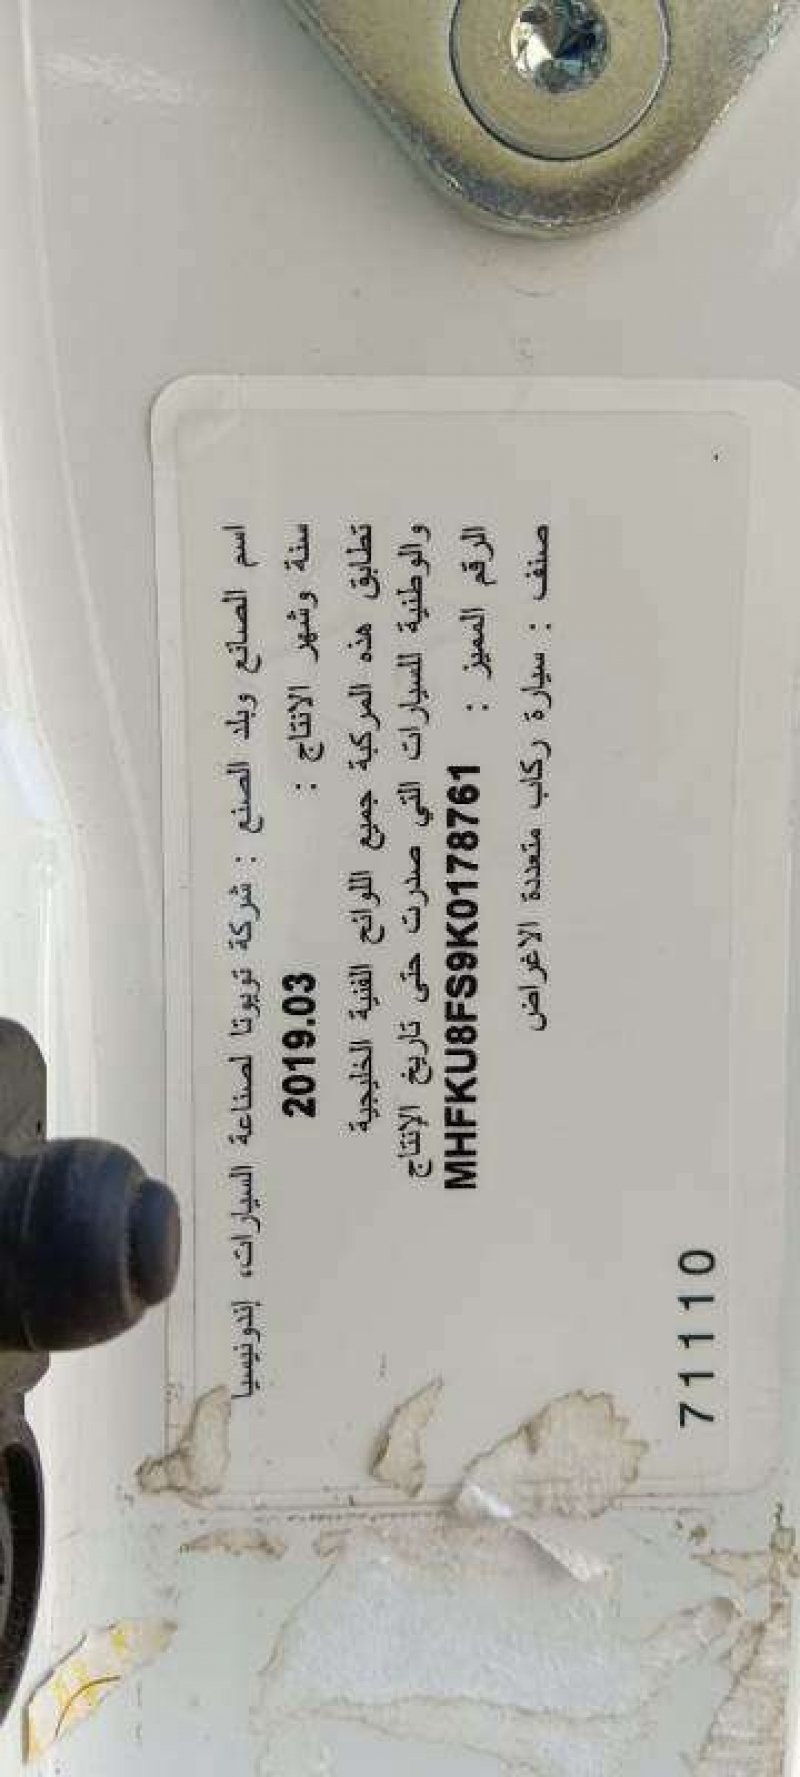 اسم الصانع وبلد الصنع : شركة تويوتا لصناعة السيارات، إندونيسيا
سنة وشهر الانتاج : 2019.03
تطابق هذه المركبة جميع اللوائح الفنية الخليجية
والوطنية للسيارات التي صدرت حتى تاريخ الإنتاج
الرقم المميز : MHFKU8FS9K0178761
صنف : سيارة ركاب متعددة الاغراض
71110